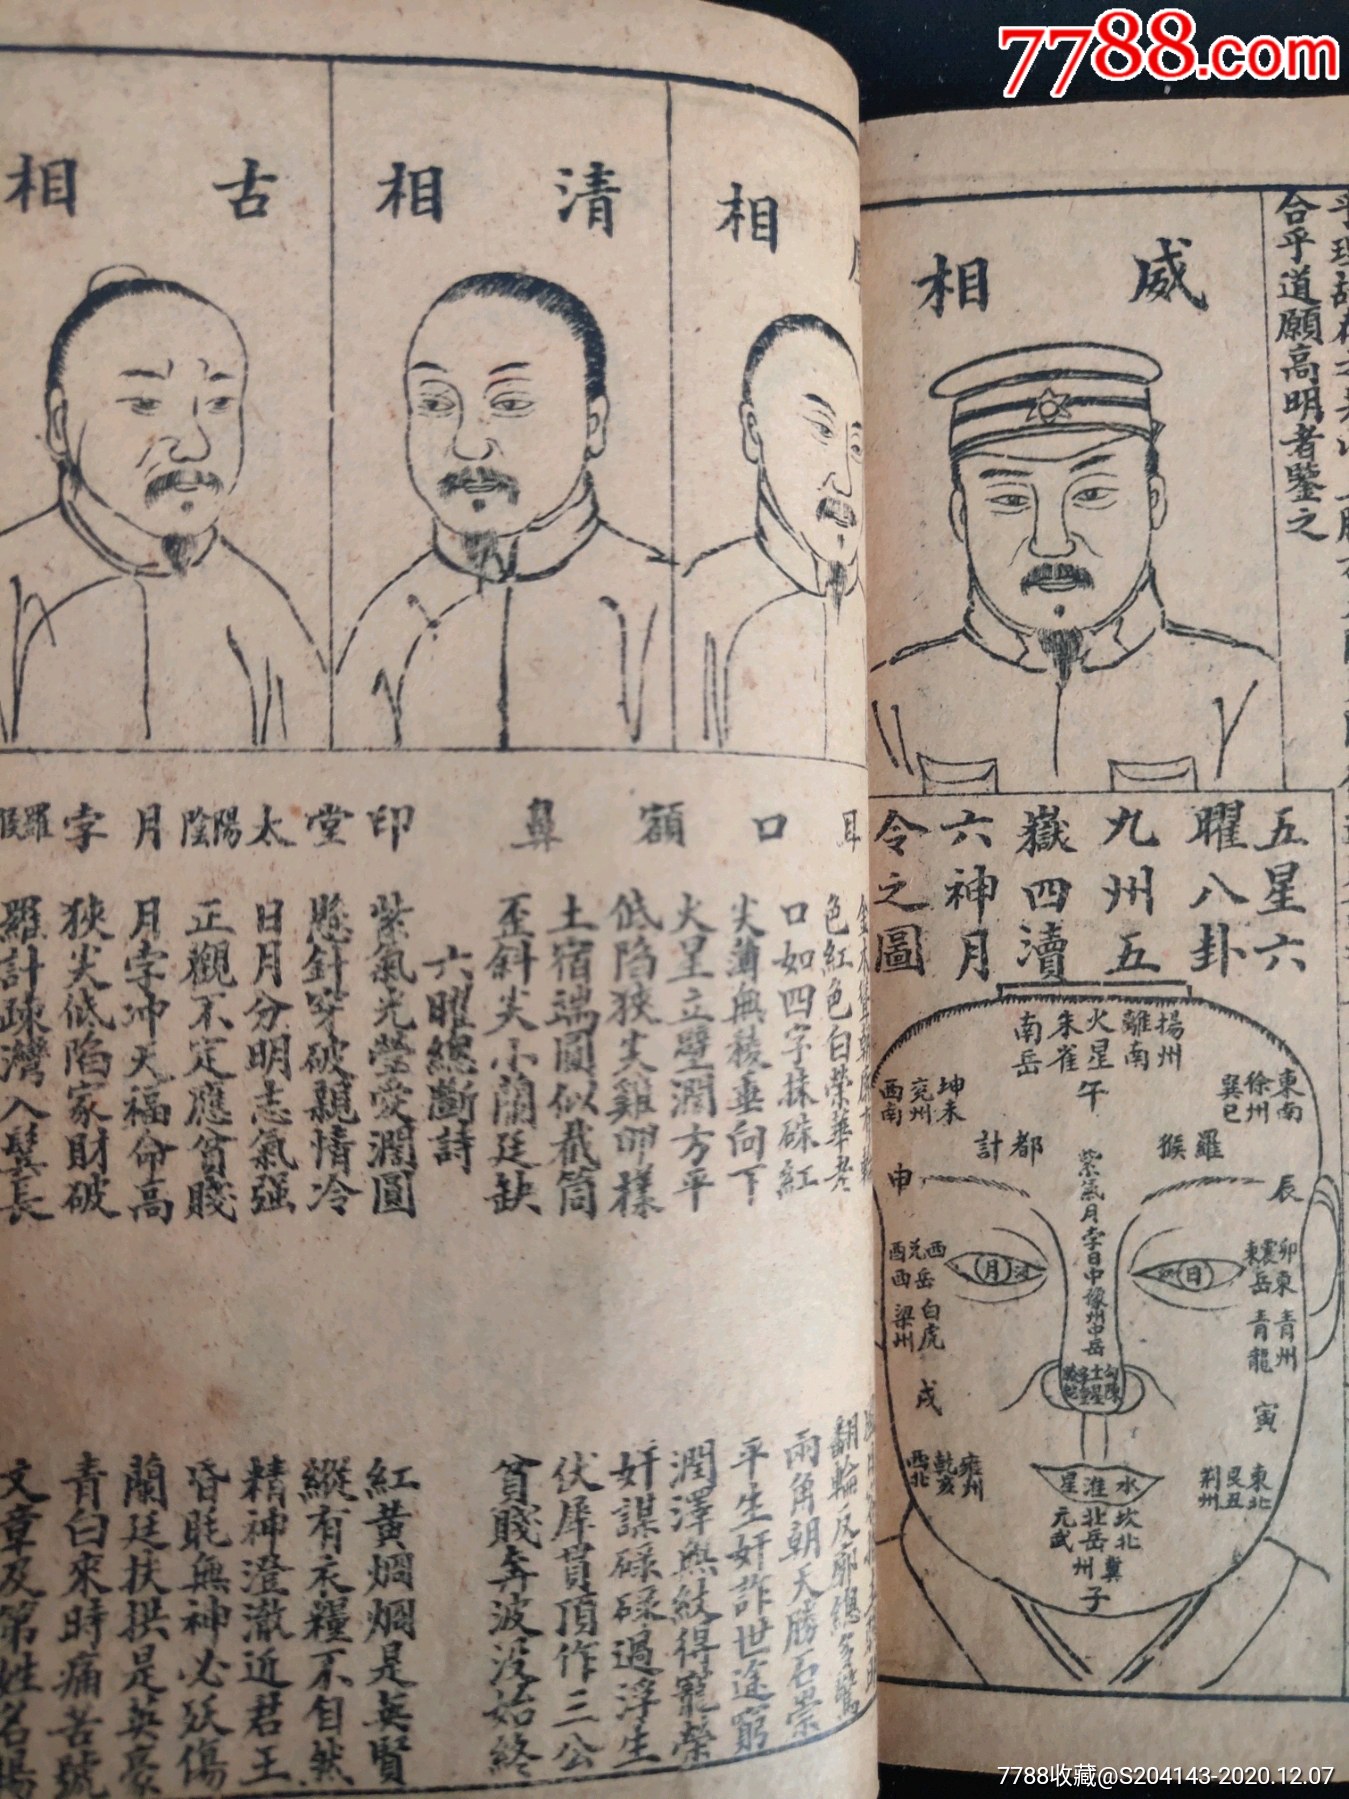 7788.com
合乎道願高明者鑒之
威相
五星六
曜八卦
九州五
嶽四瀆
六神月
令之圖
揚州
離南
火星
朱雀
南岳
午
東南
徐州
巽巳
坤未
兗州
西南
羅睺
計都
辰
申
紫氣月孛日中豫州中岳
日
月
卯東
震
東岳
青州
青龍
寅
西岳
兌
酉西
白虎
梁州
戌
土星
東北
艮丑
荆州
雍州
乾亥
西北
水淮星
坎北
北岳
元武
冀州
子
相
清相
古相
耳
口
額
鼻
印堂
太陽陰
月孛
羅睺
色紅色白榮華老
翻輪反廓總多驚
口如四字抹硃紅
兩角朝天勝石崇
尖薄無稜垂向下
平生奸詐世途窮
火星立壁潤方平
潤澤無紋得寵榮
低陷狹尖雞卵樣
奸謀碌碌過浮生
土宿端圓似截筒
伏犀貫頂作三公
歪斜尖小蘭廷缺
貧賤奔波沒始終
六曜總斷詩
紫氣光瑩愛潤圓
紅黃烱烱是英賢
懸針穿破親情冷
縱有衣糧不自然
日月分明志氣强
精神澄澈近君王
正觀不定應貧賤
昏眊無神必殀傷
月孛冲天福命高
蘭廷扶拱是英豪
狹尖低陷家財破
青白來時痛苦號
羅計踈灣入鬓長
文章及第姓名揚
7788收藏@S204143-2020.12.07